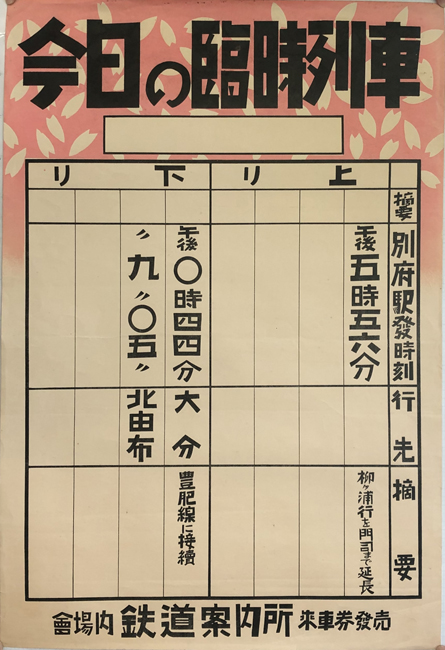 今日の臨時列車
上り
下り
摘要
別府駅發時刻
行先
摘要
午後五時五六分
柳ヶ浦行を門司まで延長
午後〇時四四分
大分
豊肥線に接続
〃九〃〇五〃
北由布
會場内 鉄道案内所 来車券發売